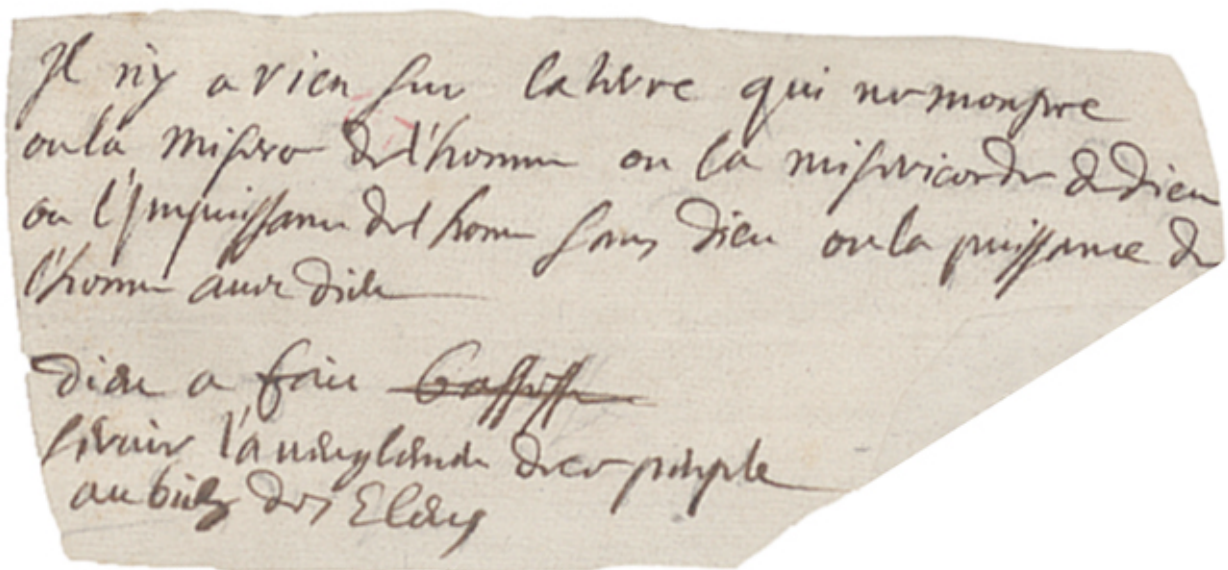 Il n'y a rien sur la terre qui ne monstre
ou la misere de l'homme ou la misericorde de dieu
ou l'Impuissance de l homme sans dieu ou la puissance de
l'homme avec dieu
dieu a fait
servir l'aveuglement de ce peuple
au bien des Eleus